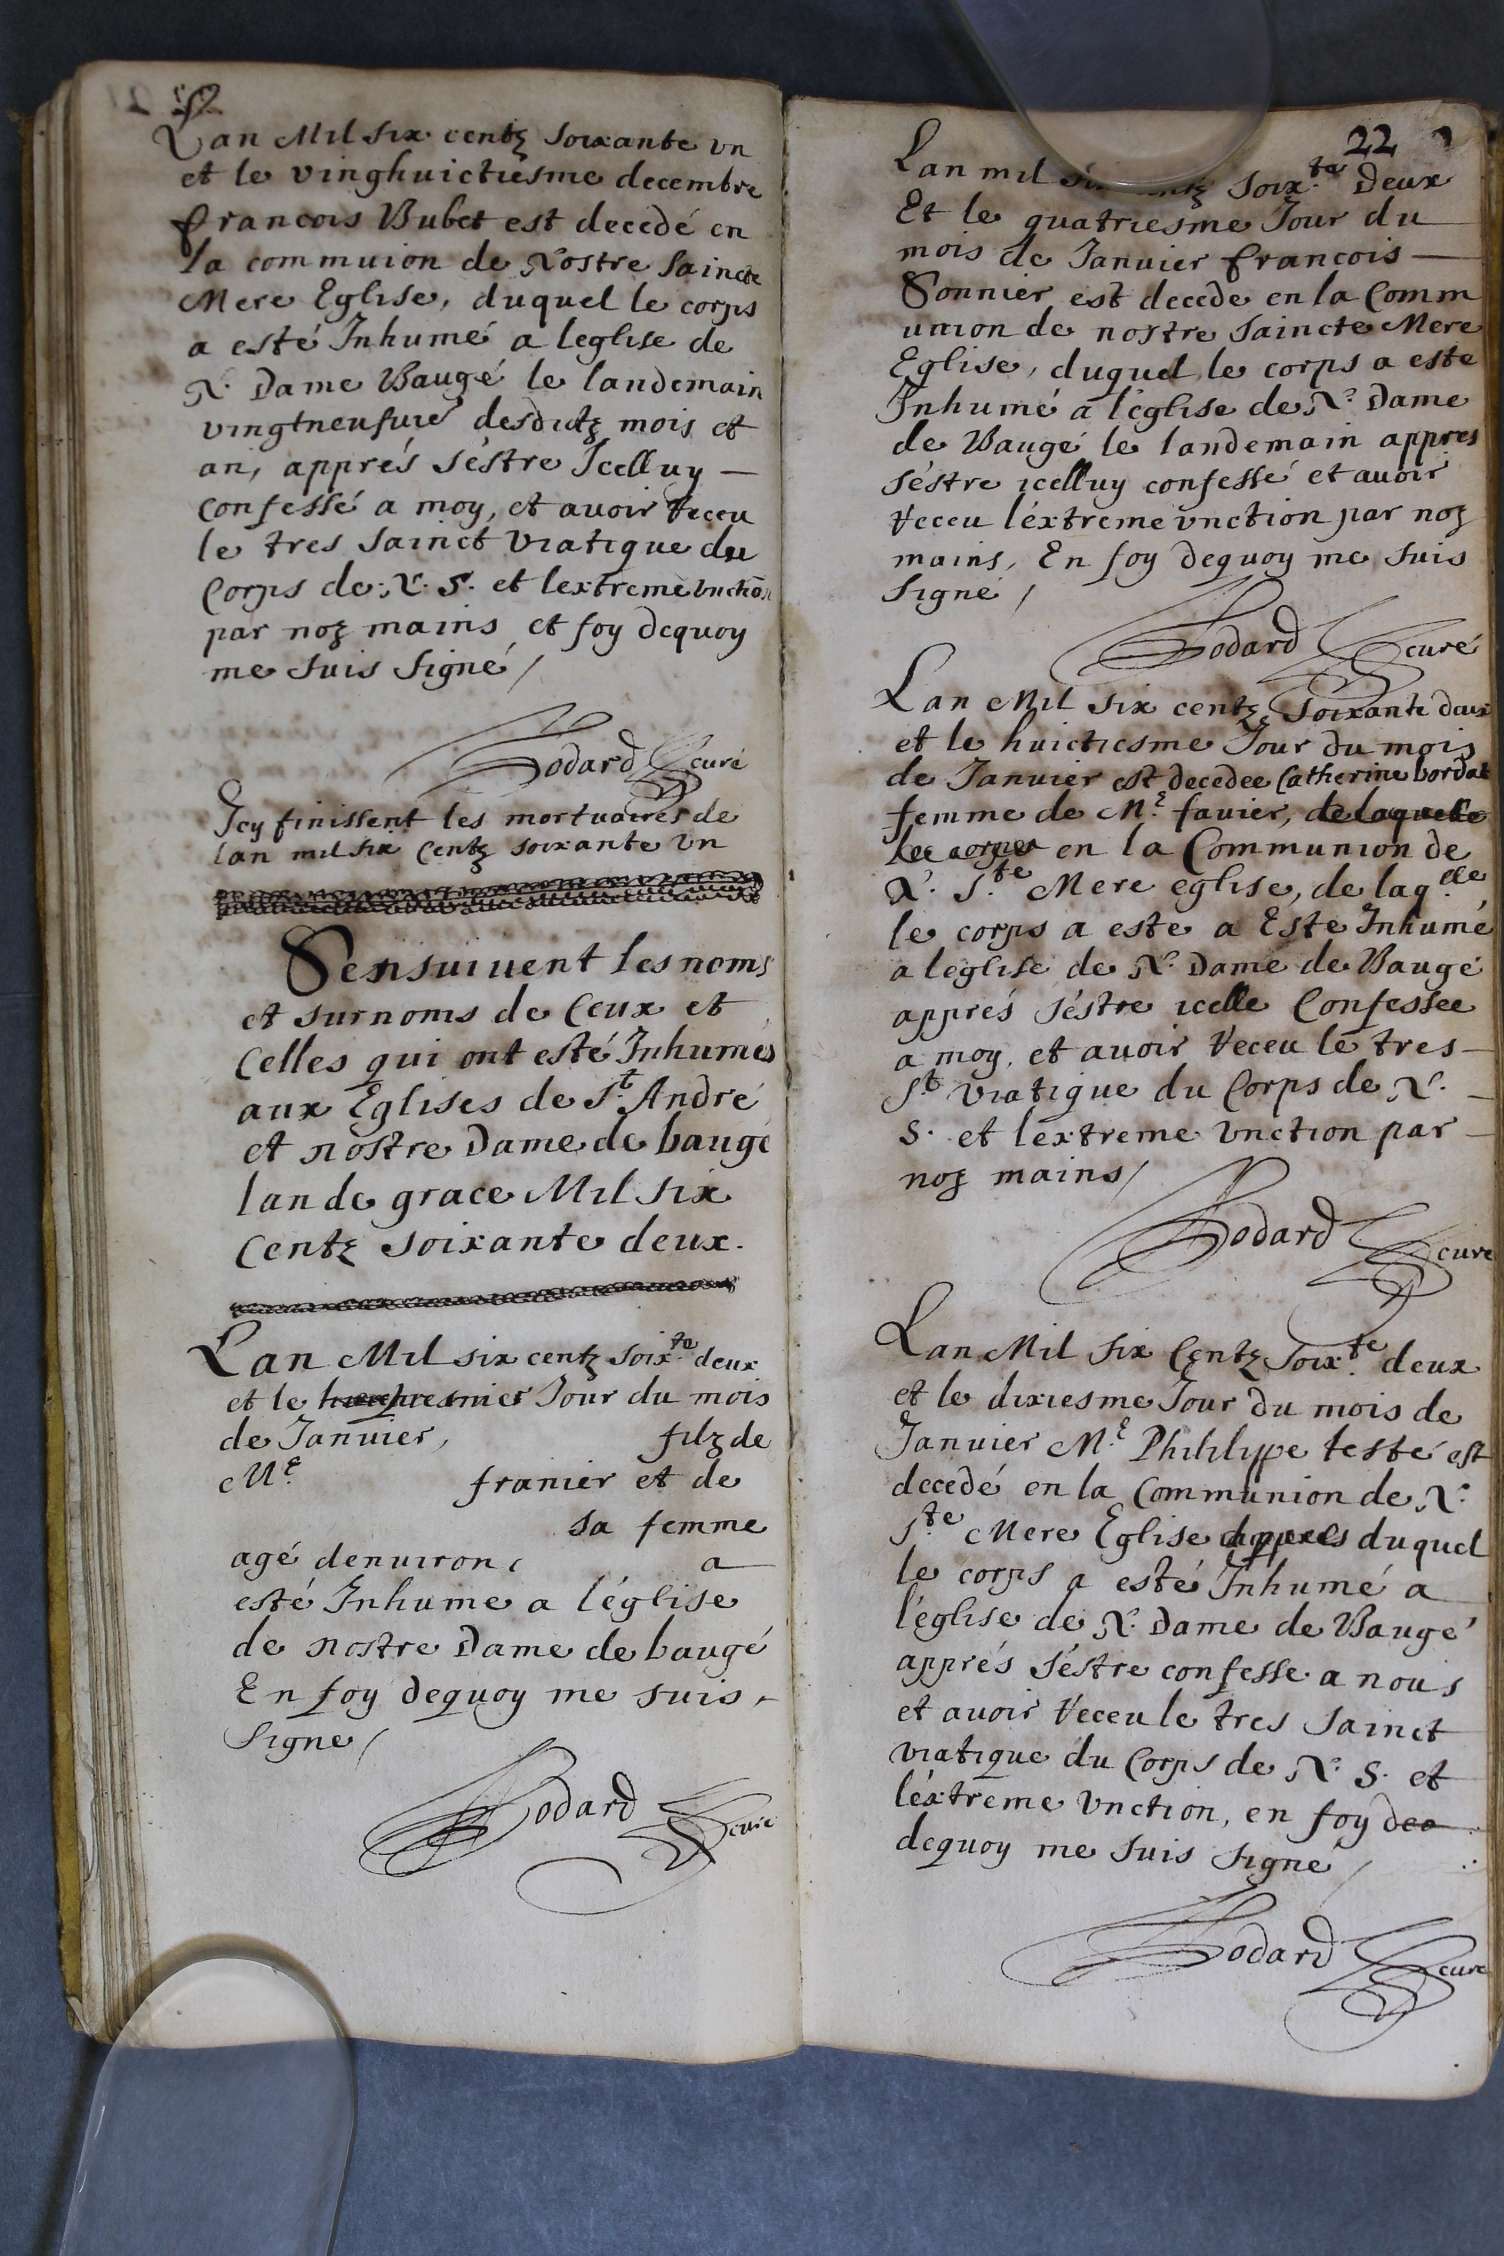 Lan Mil six centz soixante vn
et le vinghuictiesme decembre
francois Bubet est decedé en
la commuion de Nostre saincte
Mere Eglise, duquel le corps
a esté Inhumé a leglise de
N. Dame Baugé le landemain
vingtneufuie desdictz mois et
an, apprés séstre Icelluy
confessé a moy, et auoir receu
le tres sainct viatique du
Corps de N. S. et lextreme vnction
par noz mains et foy dequoy
me suis signé /
Bodard curé
Icy finissent les mortuaires de
lan mil six Centz soixante vn
Sensuiuent les noms
et surnoms de Ceux et
Celles qui ont esté Inhumés
aux Eglises de St. André
et nostre Dame de baugé
lan de grace Mil six
Centz soixante deux.
Lan Mil six centz soix.te deux
et le premier Jour du mois
de Januier, filz de
Me. franier et de
sa femme
agé denuiron a
esté Inhume a léglise
de nostre Dame de baugé
En foy dequoy me suis
signe /
Bodard curé
22
Lan mil soix.te Deux
Et le quatriesme Jour du
mois de Januier francois
Sonnier est decede en la Comm
union de nostre saincte Mere
Eglise, duquel le corps a este
Inhumé a léglise de N. Dame
de Baugé le landemain appres
séstre icelluy confessé et auoir
receu léxtreme vnction par noz
mains, En foy dequoy me suis
signé /
Bodard curé
Lan Mil six centz soixante deux
et le huictiesme Jour du mois
de Januier est decedee Catherine bordat
femme de Me. fauier, de laquelle
le corps en la Communion de
N. S.te Mere eglise, de laq.elle
le corps a este a Este Inhumé
a leglise de N. Dame de Baugé
apprés séstre icelle Confessee
a moy, et auoir receu le tres
St. viatique du Corps de N.
S. et lextreme vnction par
noz mains /
Bodard curé
Lan Mil six Centz soix.te deux
et le dixiesme Jour du mois de
Januier Me. Philippe testé est
decedé en la Communion de N.
S.te Mere Eglise duquel
le corps a esté Inhumé a
léglise de N. Dame de Baugé
apprés séstre confesse a nous
et auoir receu le tres sainct
viatique du Corps de N. S. et
léxtreme vnction, en foy deo
dequoy me suis signé /
Bodard curé